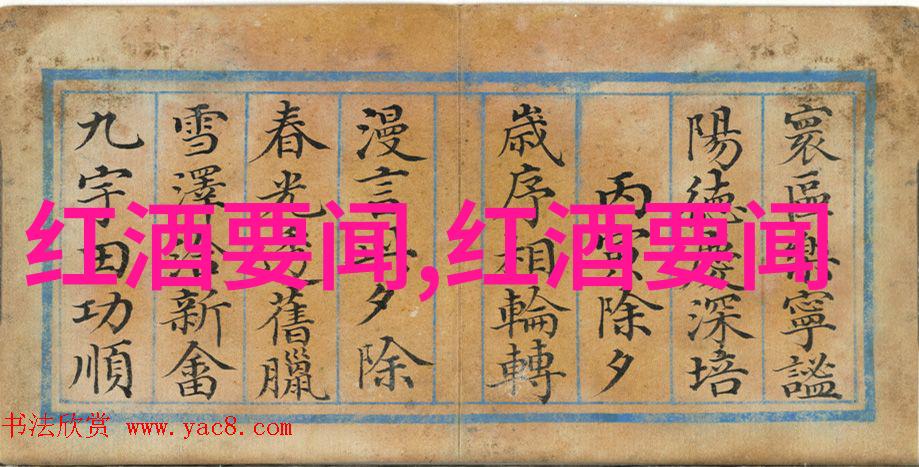 寰區寧謐
陽德深培
丙寅除夕
歲序相輪轉
漫言夕除
春光舊臘
雪澤新畬
九宇田功順
红酒要闻,红酒要闻
书法欣赏 www.yac8.com